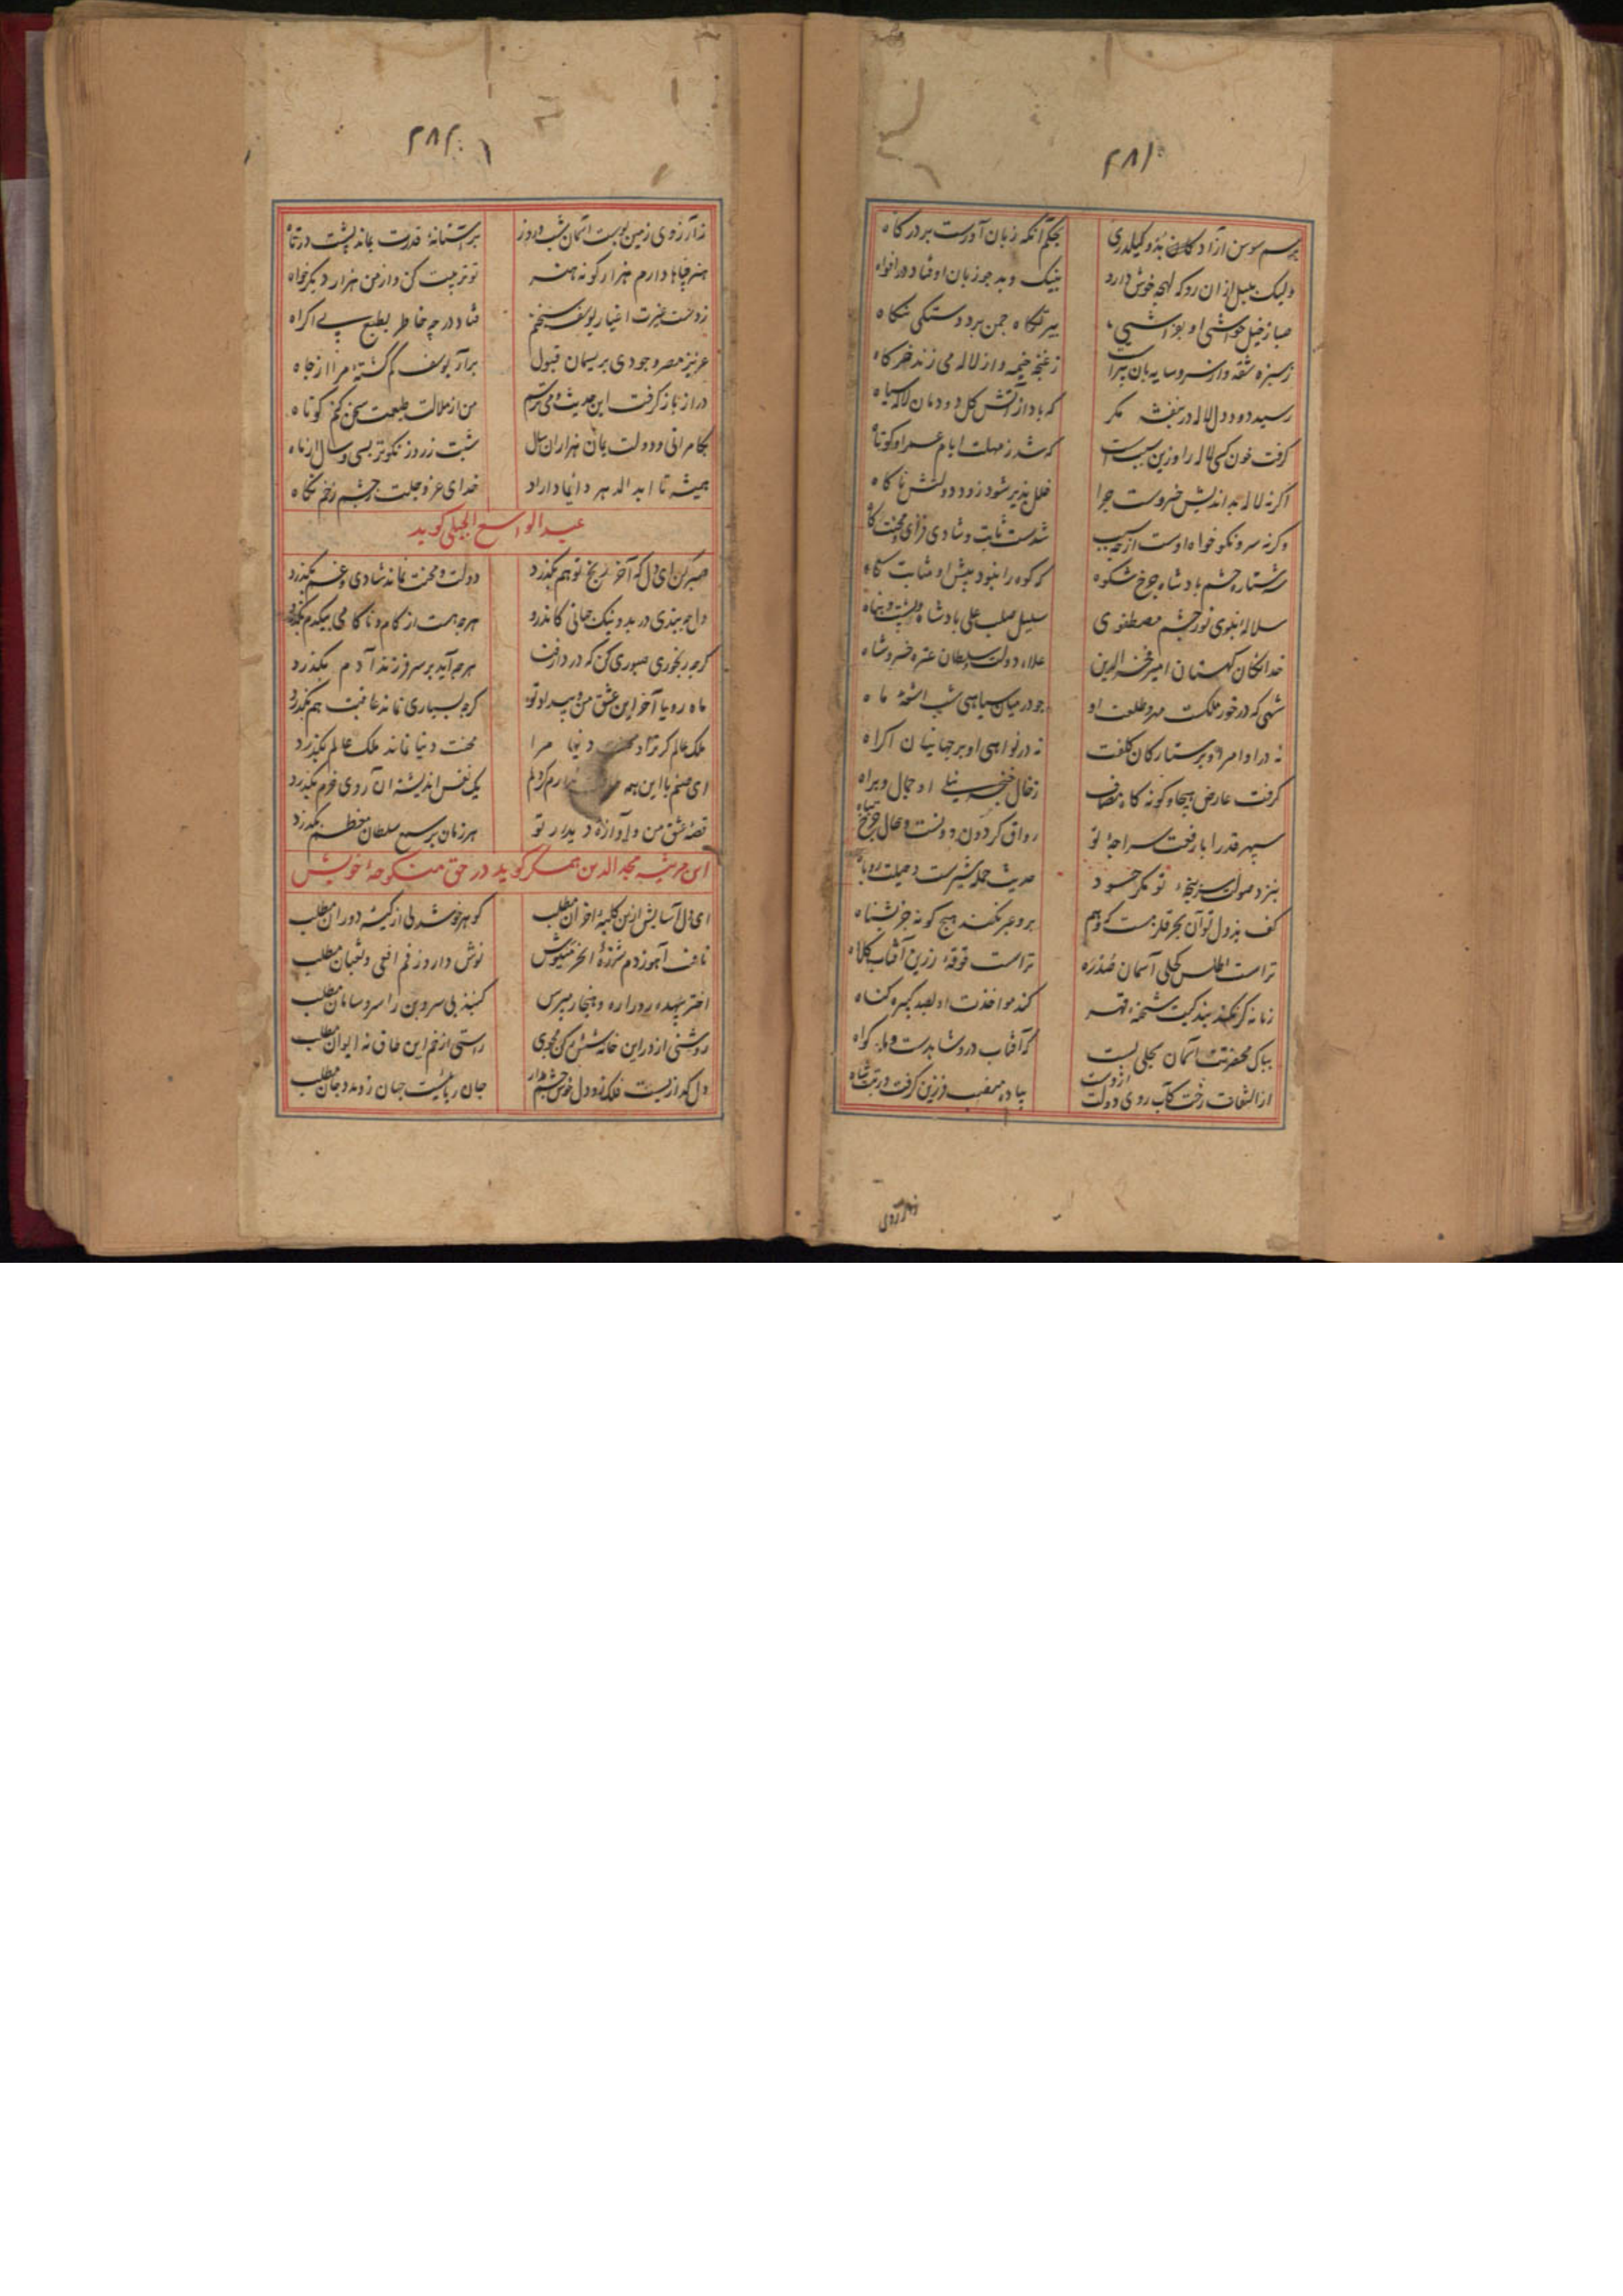 ۲۸۱
برسم سوسن آزادکان بذو کیلدری بحکم آنکه زبان آورست بر درکاه
ولیک بلبل از ان رو که لهجه خوش دارد بنیک و بد چو زبان اوفتاد در افواه
صبا زخیل
زسبزه شقه و از سرو سایه بان زغنچه خیمه و از لاله می زند خرکاه
رسید دود دل لاله در بنفشه مکر که باد از آتش کل دودمان لاله سیاه
کرفت خون کسی لاله را وزین سبب است که شد ز مهلت ایام عمر او کوتاه
اکر نه لاله بداندیش خسروست چرا خلل پذیر شود زود دولتش ناکاه
وکر نه سرو نکو خواه اوست از چه سبب شدست ثابت و شادی فزای
ستاره حشم پادشاه چرخ شکوه که کوه را نبود پیش او مثابت کاه
سلاله نبوی نور چشم مصطفوی سلیل صلب علی پادشاه پشت و پناه
خدایکان کهستان امیر فخر الدین علاء دولت سلطان عتره خسرو شاه
شهی که در خور ملکست مهر و طلعت او چو در میان سیاهی شب اشعه ماه
نه در اوامر او بر ستارکان کلفت نه در نواهی او بر جهانیان اکراه
کرفت عارض هیجا و کونه کاه مصاف زخال خنجر نیلی او جمال و براه
سپهر قدرا با رفعت سراچه تو رواق کردون دونست و طاق چرخ دوتاه
بنزد صولت سرپنجه تو مکر حسود حدیث حمله شیرست و حیلت روباه
کف بذول تو آن بحر قلزمست که وهم برو عبر نکند هیچ کونه جز بشناه
تراست اطلس کحلی آسمان صدره تراست قوقه زرین آفتاب کلاه
زمانه کر نکند بندکیت شحنه قهر کند مواخذت او بصد کبیره کناه
بپاکی محضرت آسمان سجلی بست که آفتاب درو شاهدست و ماه کواه
از التفات رخت کآب روی دولت ازوست پیاده منصب فرزین کرفت و رتبت شاه
زارزوی
۲۸۲
ز آرزوی زمین بوست آسمان شب و روز بر آستانه قدرت بماند پشت دوتاه
هنر چها دارم هزار کونه هنر تو تربیت کن و از من هزار دیکر خواه
زدست غیرت اغیار یوسف سخنم فتاد در چه خاطر بطبع بی اکراه
عزیز مصر وجودی بریسمان قبول برآر یوسف کم کشته مرا از چاه
دراز باز کرفت این حدیث و می ترسم من از ملالت طبعت سخن کنم کوتاه
بکامرانی و دولت بمان هزاران سال شبت ز روز نکوتر بسی و سال از ماه
همیشه تا ابد الدهر دائما داراد خدای عز و جلت ز چشم زخم نکاه
عبد الواسع الجبلی کوید
صبر کن ای دل که آخر رنج تو هم بکذرد دولت و محنت نماند شادی و غم بکذرد
دل چه بندی در بد و نیک جهانی کاندرو هرچه هست از کام و ناکامی بیکدم بکذرد
کرچه رنجوری صبوری کن که در دار فنا هرچه آید بر سر فرزند آدم بکذرد
ماه رویا آخر این عشق من و بیداد تو کرچه بسیاری نماند عاقبت هم بکذرد
ملک عالم کر ترا دنیا مرا محنت دنیا نماند ملک عالم بکذرد
ای صنم با این همه دلم یک نفس اندیشه آن روی خرم بکذرد
قصه عشق من و آوازه دیدار تو هر زمان بر سمع سلطان معظم بکذرد
این مرثیه مجد الدین همکر کوید در حق منکوحه خویش
ای دل آسایش ازین کلبه احزان مطلب کوهر خوشدلی از کیسه دوران مطلب
نافه آهو زدم شرزه منیوش نوش دارو ز فم افعی و ثعبان مطلب
اختر بیهده رو را ره و هنجار مپرس کنبذ بی سر و بن را سر و سامان مطلب
روشنی از در این خانه شش در مجوی راستی از خم این طاق نه ایوان مطلب
جان رباییست جهان زو مدد جان مطلب